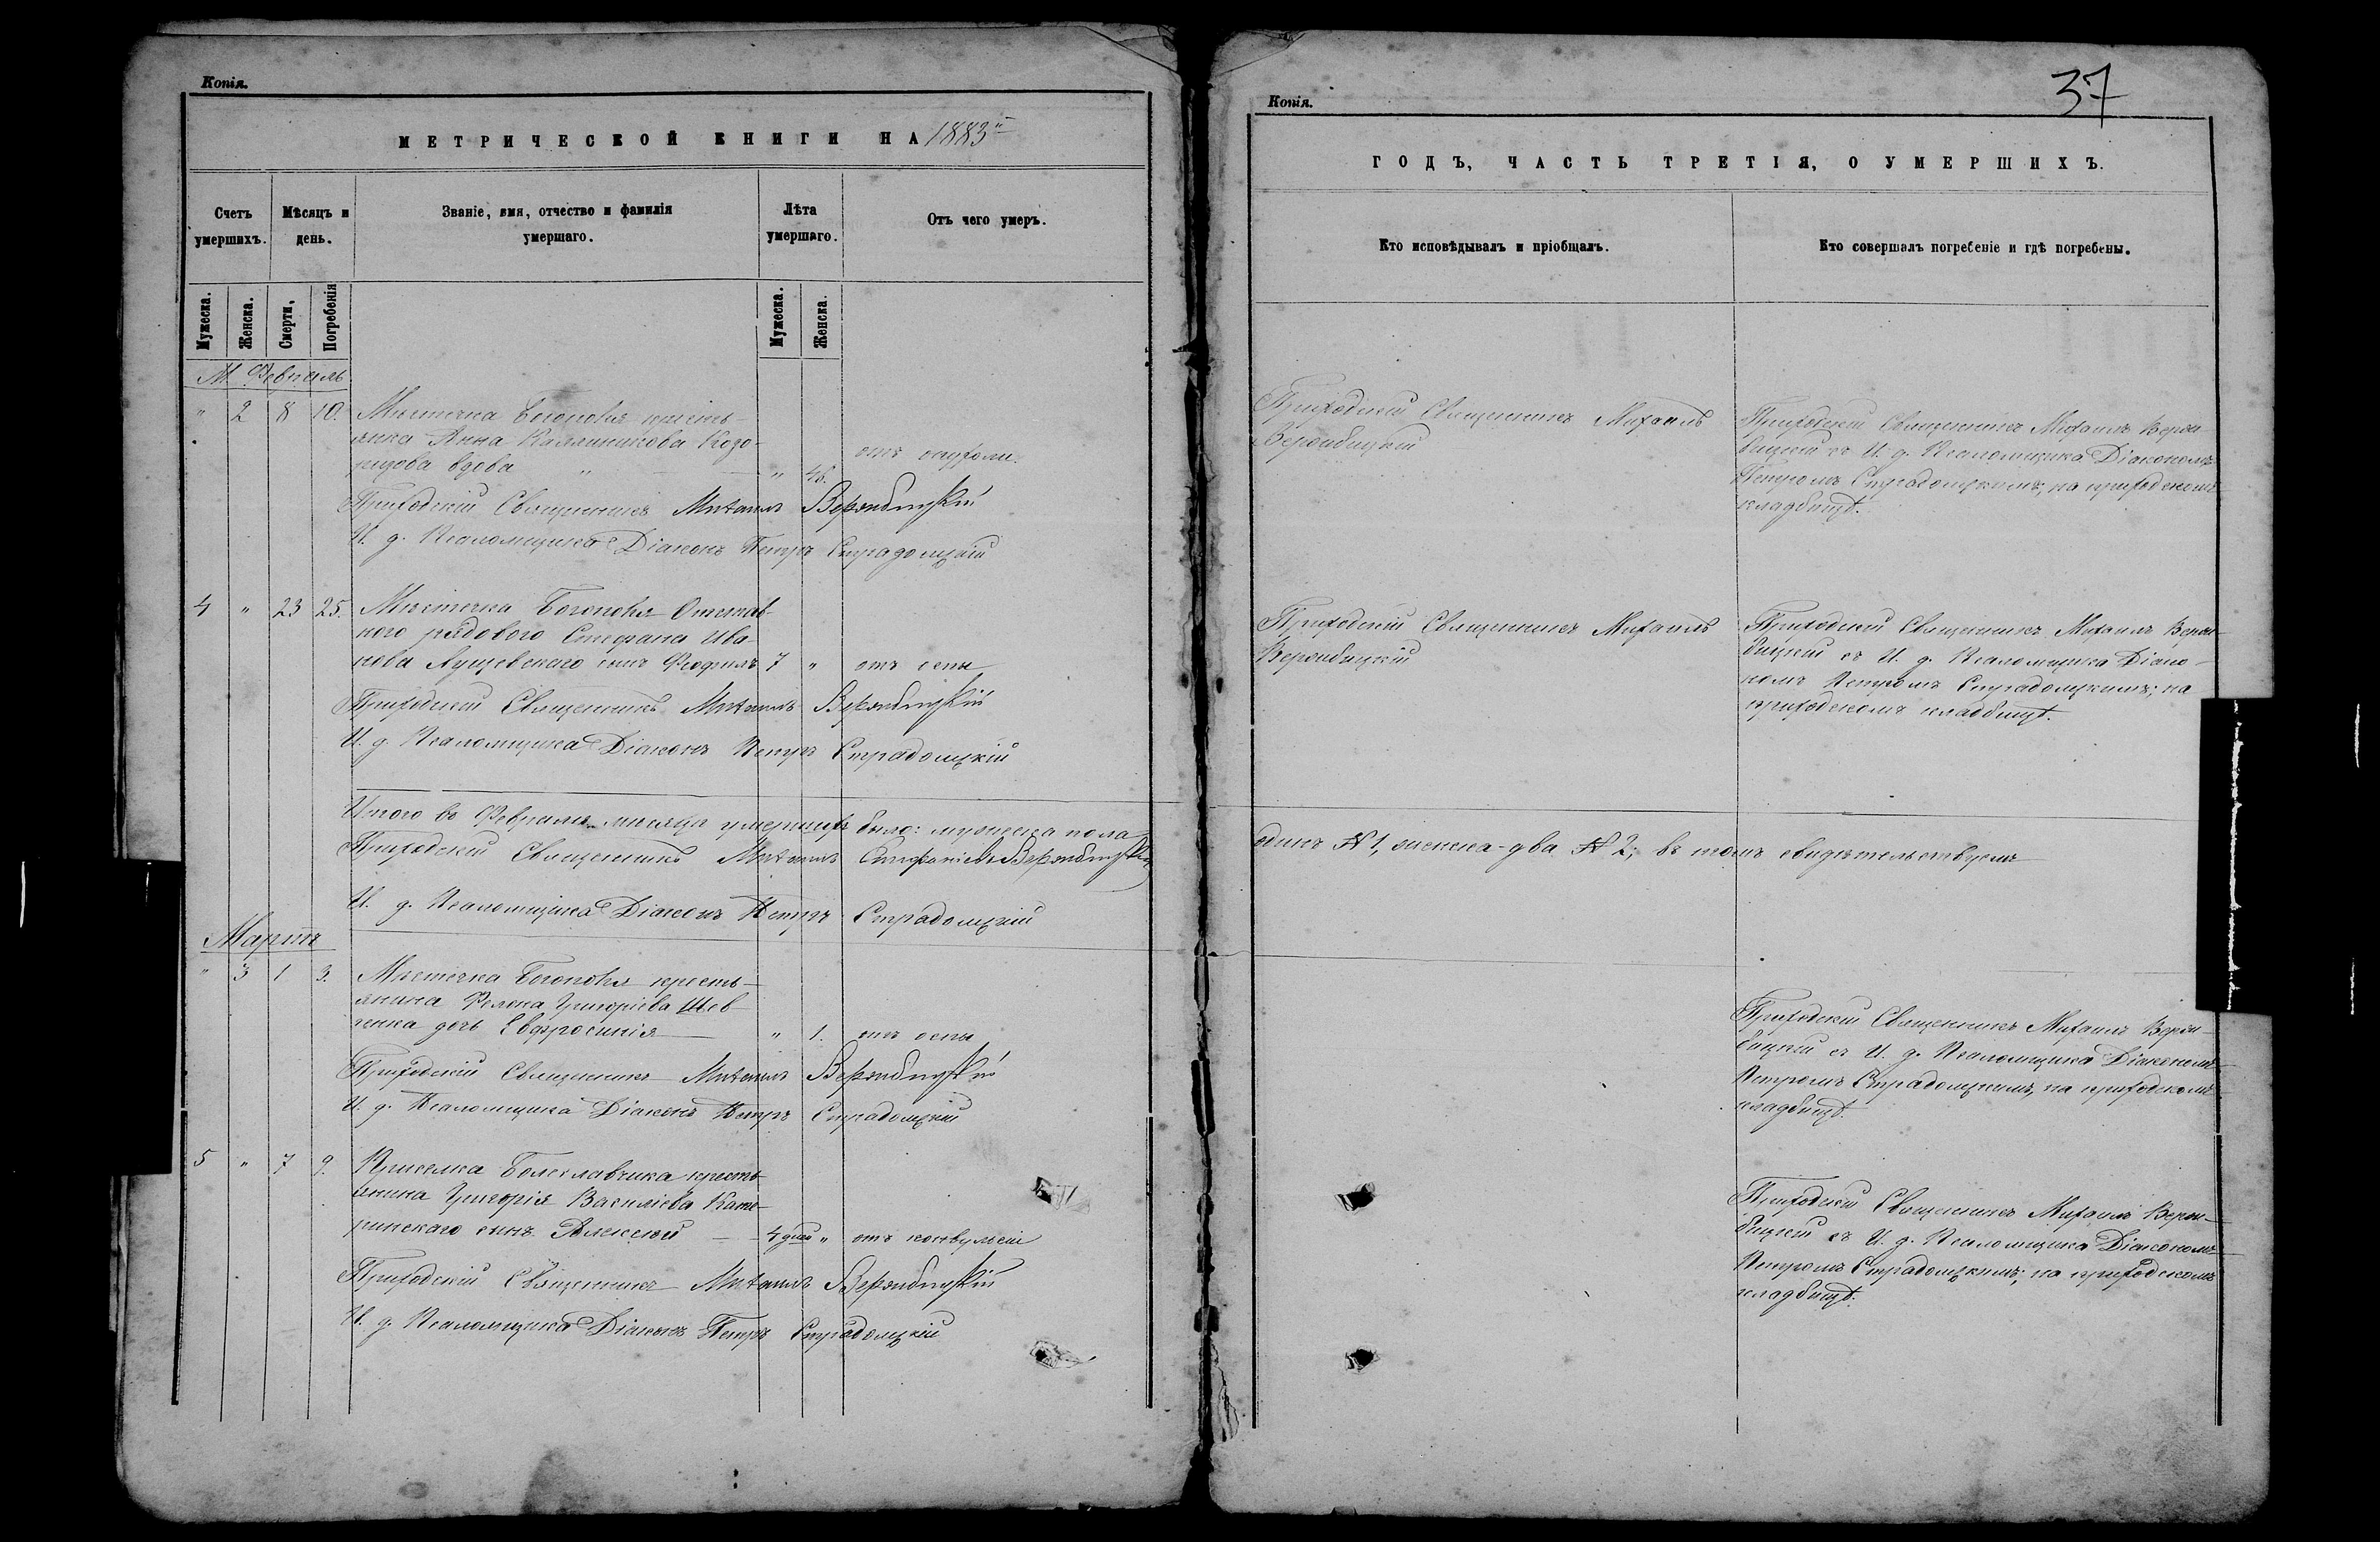 Копія.
МЕТРИЧЕСКОЙ КНИГИ НА 1883й
Счетъ умершихъ.
Мѣсяцъ и день.
Званіе, имя, отчество и фамилія умершаго.
Лѣта умершаго.
Отъ чего умеръ.
Мужеска.
Женска.
Смерти,
Погребенія
Мужеска.
Женска.
М. Февраль
" 2 8 10. Мѣстечка Богополя кресть-
янка Анна Каллиникова Козо-
вдова " 48. отъ
Приходскій Священникъ Михаилъ Вержбицкій
И. д. Псаломщика Діаконъ Петръ Страдомскій
4 " 23 25. Мѣстечка Богополя Отстав-
ного рядового Стефана Ива-
нова сынъ Феофилъ 7 " отъ оспы
Приходскій Священникъ Михаилъ Вержбицкій
И. д. Псаломщика Діаконъ Петръ Страдомскій
Итого въ Февралѣ мѣсяцѣ умершихъ было: мужеска пола
Приходскій Священникъ Михаилъ Вержбицкій
И. д. Псаломщика Діаконъ Петръ Страдомскій
Мартъ
" 3 1 3. Мѣстечка Богополя кресть-
янина Григоріева Шев-
ченка дочь Евфросинія " 1. отъ оспы
Приходскій Священникъ Михаилъ Вержбицкій
И. д. Псаломщика Діаконъ Петръ Страдомскій
5 " 7 9. Приселка Болеславчика кресть-
янина Григорія Василіева Кате-
ринскаго сынъ Алексѣй 4 дней " отъ конвульсіи
Приходскій Священникъ Михаилъ Вержбицкій
И. д. Псаломщика Діаконъ Петръ Страдомскій
Копія.
37
ГОДЪ, ЧАСТЬ ТРЕТІЯ, О УМЕРШИХЪ.
Кто исповѣдывалъ и пріобщалъ.
Кто совершалъ погребеніе и гдѣ погребены.
Приходскій Священникъ Михаилъ
Вержбицкій
Приходскій Священникъ Михаилъ Верж-
бицкій съ И. д. Псаломщика Діакономъ
Петромъ Страдомскимъ, на приходскомъ
кладбищѣ.
Приходскій Священникъ Михаилъ
Вержбицкій
Приходскій Священникъ Михаилъ Верж-
бицкій съ И. д. Псаломщика Діако-
номъ Петромъ Страдомскимъ; на
приходскомъ кладбищѣ.
одинъ № 1, женска-два № 2; въ томъ свидѣтельствуемъ
Приходскій Священникъ Михаилъ Верж-
бицкій съ И. д. Псаломщика Діакономъ
Петромъ Страдомскимъ, на приходскомъ
кладбищѣ.
Приходскій Священникъ Михаилъ Верж-
бицкій съ И. д. Псаломщика Діакономъ
Петромъ Страдомскимъ; на приходскомъ
кладбищѣ.